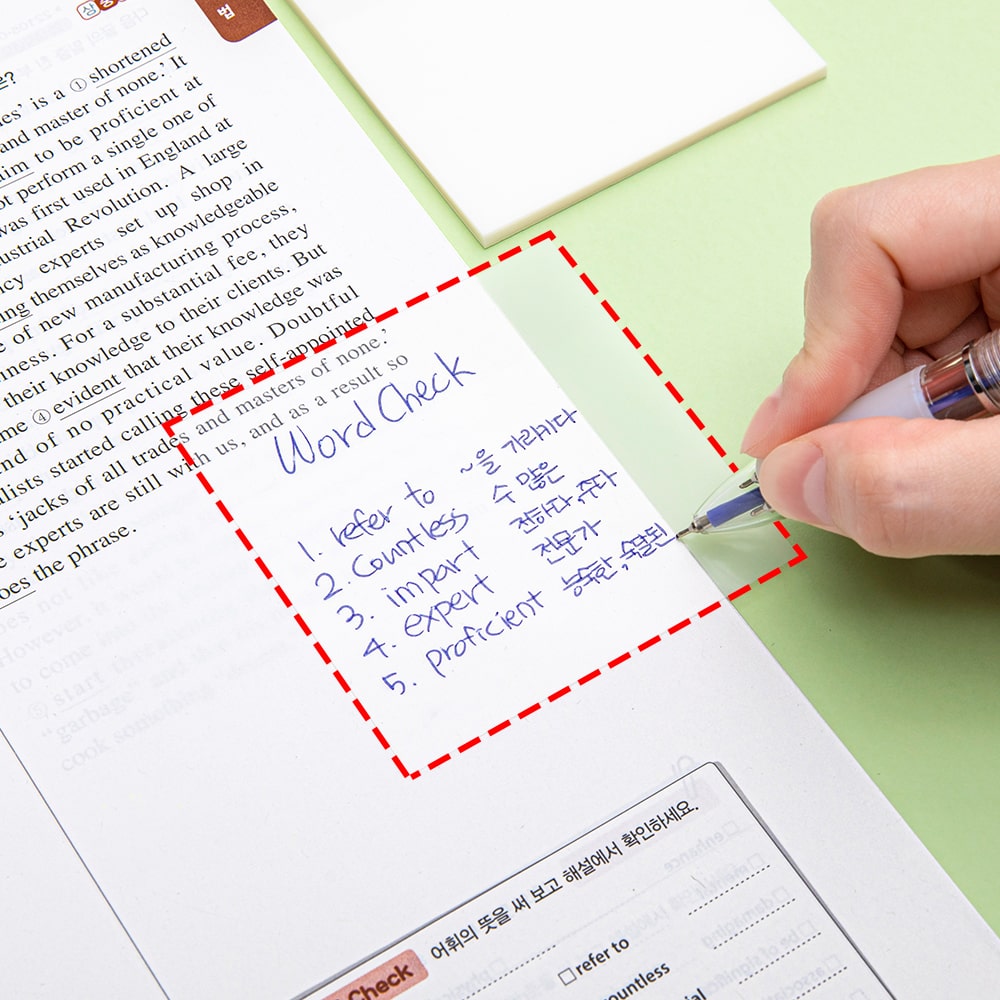 법
상
은?
es' is a ① shortened
and master of none.' It
aim to be proficient at
ot perform a single one of
was first used in England at
ustrial Revolution. A large
ncy experts set up shop in
ing themselves as knowledgeable
e of new manufacturing process,
ness. For a substantial fee, they
their knowledge to their clients. But
me ④ evident that their knowledge was
nd of no practical value. Doubtful
lists started calling these self-appointed
'jacks of all trades and masters of none.'
e experts are still with us, and as a result so
oes the phrase.
Word Check
1. refer to ~을 가리키다
2. Countless 수 많은
3. impart 전하다, 주다
4. expert 전문가
5. proficient 능숙한, 숙달된
However
to come
⑤ start
"garbage
cook something
Check 어휘의 뜻을 써 보고 해설에서 확인하세요.
□ refer to
ountless
ial